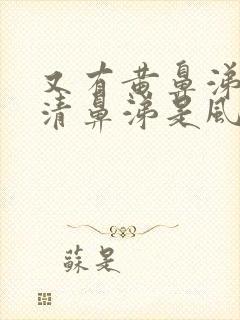 又有黄鼻涕
清鼻涕是风
蘇是